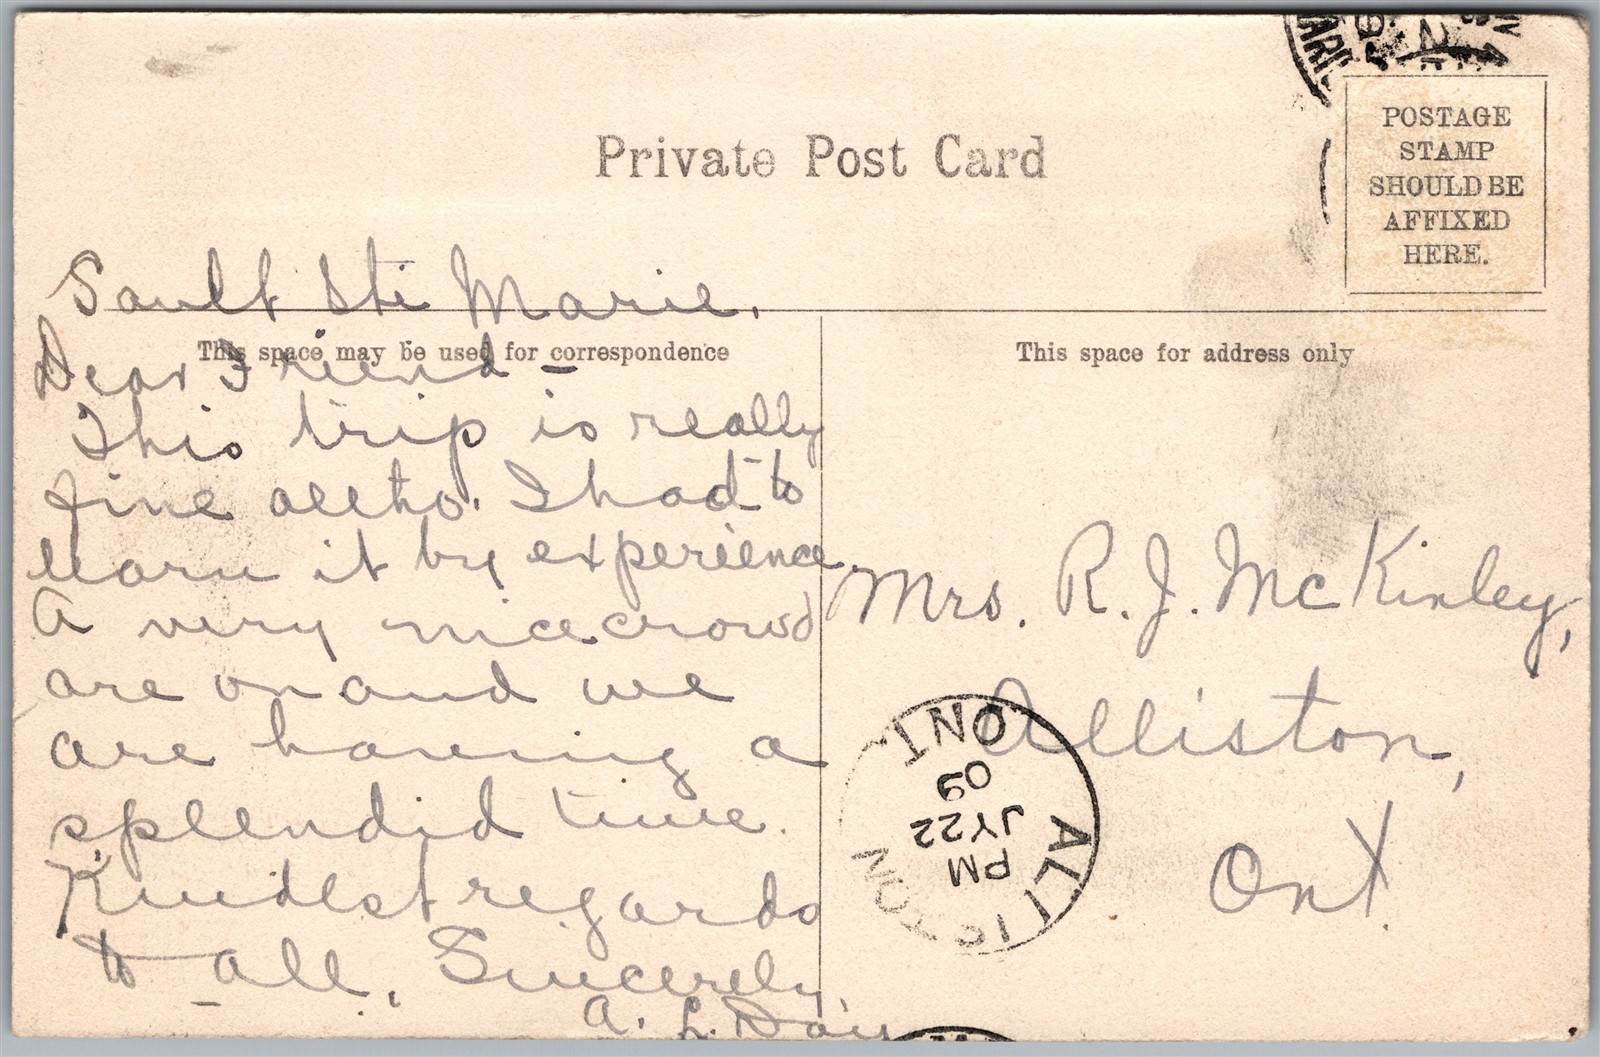 Private Post Card
POSTAGE
STAMP
SHOULD BE
AFFIXED
HERE.
Sault Ste Marie.
This space may be used for correspondence
Dear Friend –
This trip is really
fine altho. I had to
learn it by experience.
A very nice crowd
are on and we
are having a
splendid time.
Kindest regards
to all, Sincerely,
A. L. Day
This space for address only
Mrs. R. J. McKinley,
Alliston,
Ont.
ALLISTON
PM
JY 22
09
ONT.